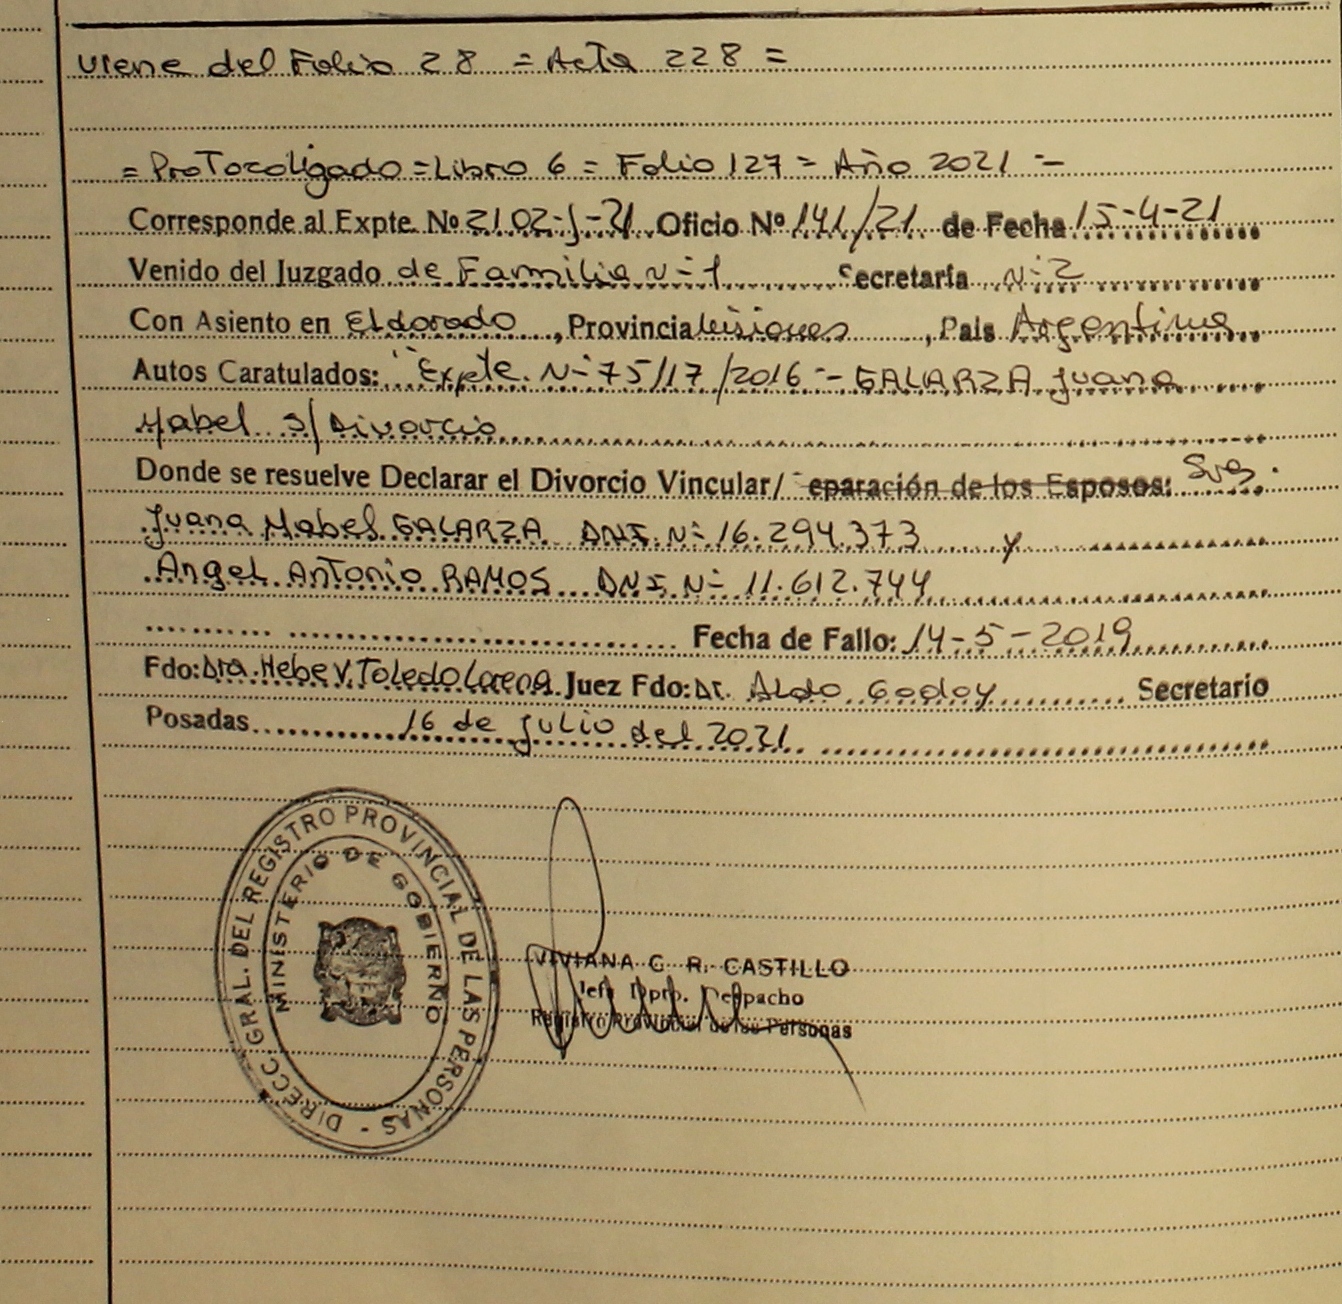 viene del Folio 28 = Acta 228 =
= Protocolizado = Libro 6 = Folio 127 = Año 2021 =
Corresponde al Expte. Nº 2102-J-21 Oficio Nº 141/21 de Fecha 15-4-21
Venido del Juzgado de Familia Nº 1 Secretaría Nº 2
Con Asiento en Eldorado, Provincia Misiones, País Argentina
Autos Caratulados: "Expte. Nº 75/17/2016 - GALARZA Juana
Mabel S/ Divorcio
Donde se resuelve Declarar el Divorcio Vincular/ eparación de los Esposos:
Juana Mabel GALARZA DNI. Nº 16.294.373 y
Angel Antonio RAMOS DNI. Nº 11.612.744
Fecha de Fallo: 14-5-2019
Fdo: Dra. Hebe V. Toledo Juez Fdo: Dr. Aldo Godoy Secretario
Posadas 16 de Julio del 2021
DIRECC GRAL. DEL REGISTRO PROVINCIAL DE LAS PERSONAS -
MINISTERIO DE GOBIERNO
VIVIANA C. R. CASTILLO
Jefe Dpto. Despacho
Registro Provincial de las Personas